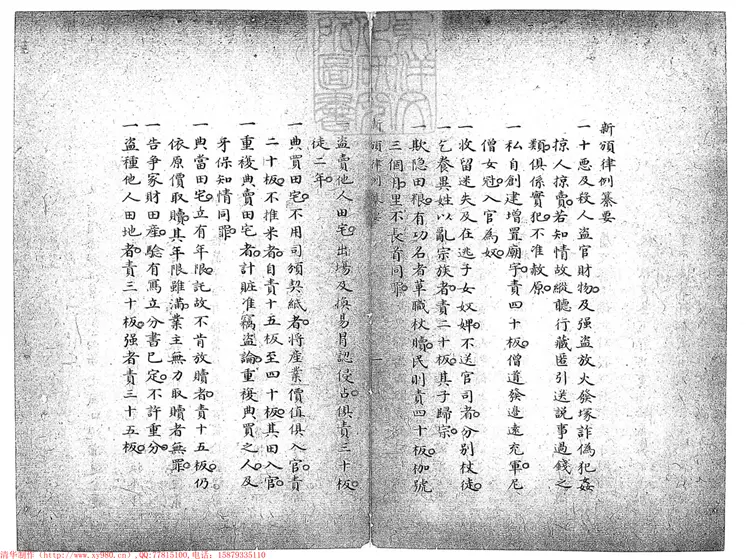 新頒律例纂要
一十惡及殺人盜官財物及强盜放火發塚詐偽犯姦
掠人掠賣若知情故縱聽行藏匿引送説事過錢之
類俱係實犯不准赦原
一私自創建增置廟宇責四十板僧道發邊遠充軍尼
僧女冠入官為奴
一收留迷失及在逃子女奴婢不送官司者分别杖徒
一乞養異姓以亂宗族者責二十板其子歸宗
一欺隐田粮有功名者革職杖贖民則責四十板枷號
三個月里不長首同罪
新頒律例纂要
一
一盜賣他人田宅出塲及換易冐認侵占俱責三十板
徒二年
一典買田宅不用司頒契紙者將産業價值俱入官責
二十板不推米者自責十五板至四十板其田入官
一重複典賣田宅者計賍准竊盜論重複典買之人及
牙保知情同罪
一典當田宅立有年限託故不肯放贖者責十五板仍
依原價取贖其年限雖滿業主無力取贖者無罪
一告爭家財田産驗有寫立分書已定不許重分
一盜種他人田地者責三十板强者責三十五板
清华制作（http://www.xy980.cn）,QQ:77815100,电话：15879335110